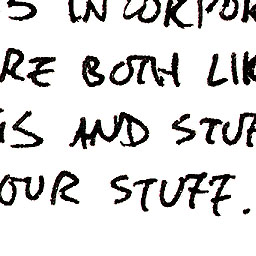 S INCORPOR
RE BOTH LIK
GS AND STUF
OUR STUFF.